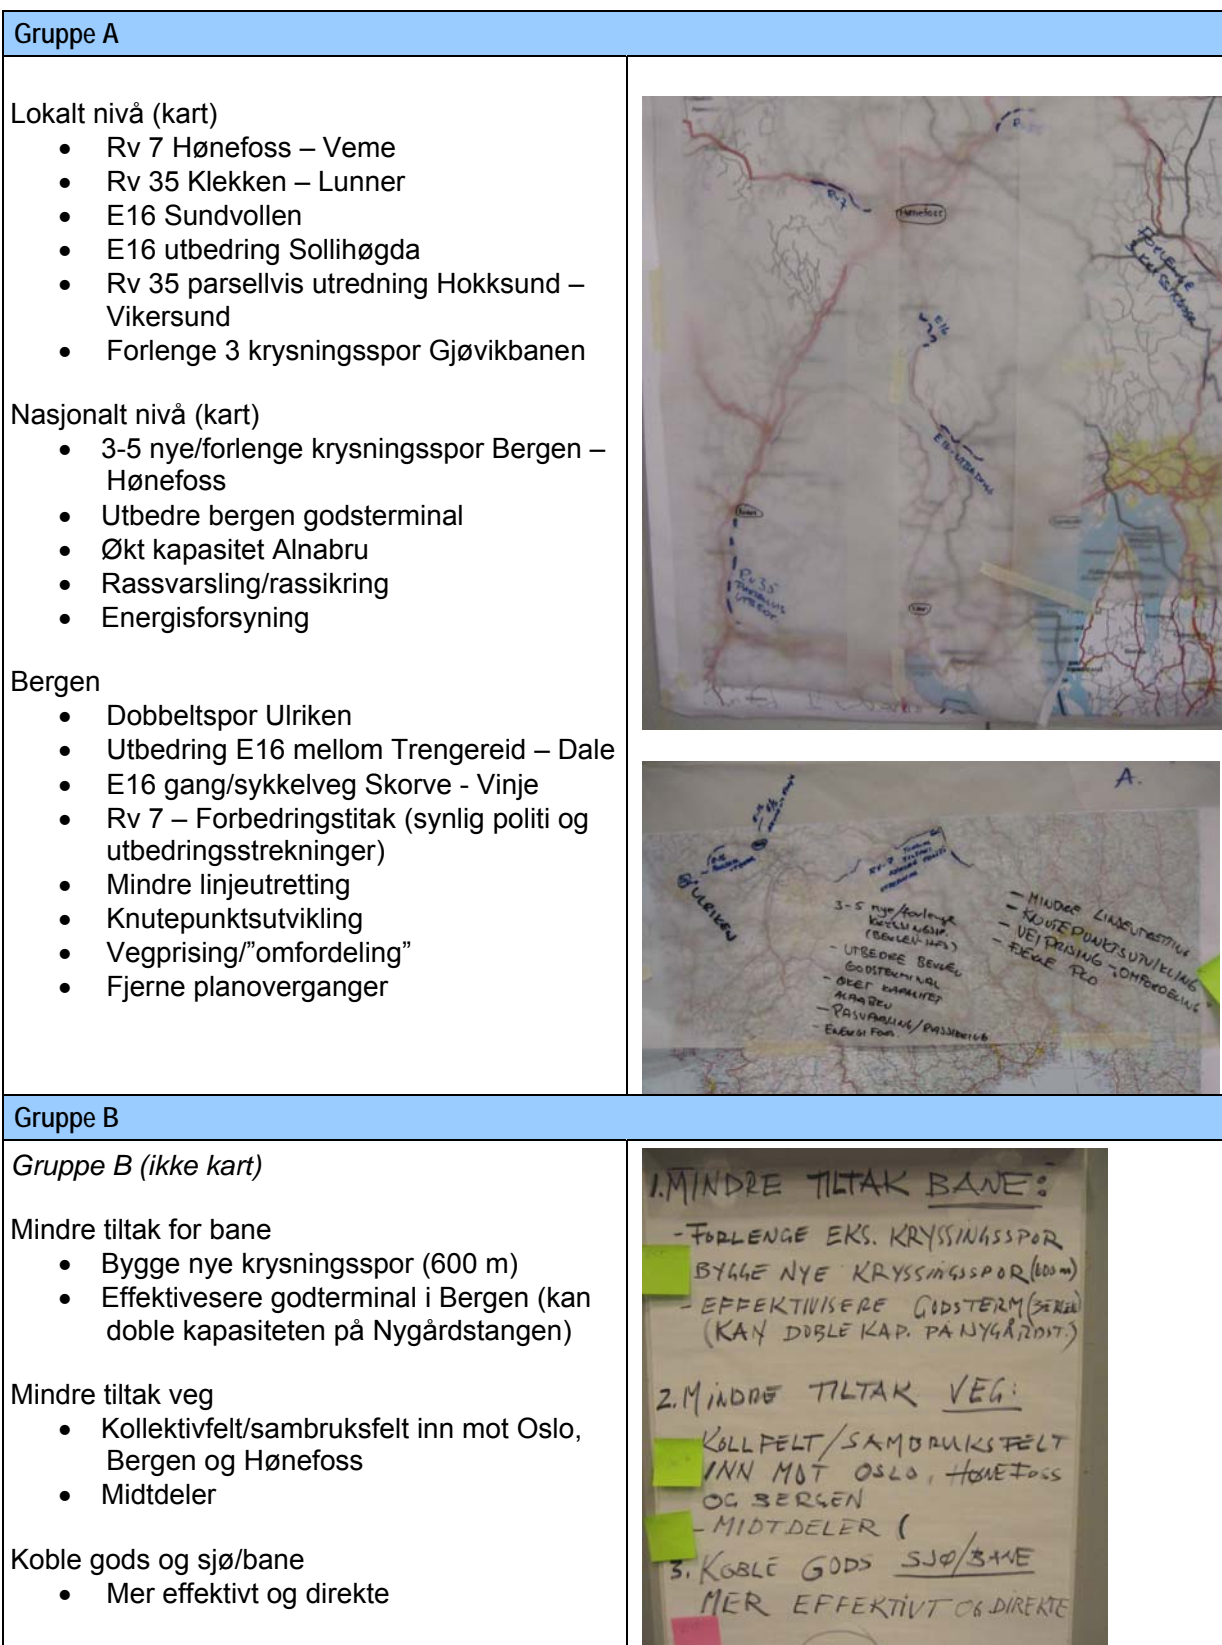 Gruppe A
Lokalt nivå (kart)
• Rv 7 Hønefoss – Veme
• Rv 35 Klekken – Lunner
• E16 Sundvollen
• E16 utbedring Sollihøgda
• Rv 35 parsellvis utredning Hokksund –
Vikersund
• Forlenge 3 krysningsspor Gjøvikbanen
Nasjonalt nivå (kart)
• 3-5 nye/forlenge krysningsspor Bergen –
Hønefoss
• Utbedre bergen godsterminal
• Økt kapasitet Alnabru
• Rassvarsling/rassikring
• Energisforsyning
Bergen
• Dobbeltspor Ulriken
• Utbedring E16 mellom Trengereid – Dale
• E16 gang/sykkelveg Skorve - Vinje
• Rv 7 – Forbedringstitak (synlig politi og
utbedringsstrekninger)
• Mindre linjeutretting
• Knutepunktsutvikling
• Vegprising/”omfordeling”
• Fjerne planoverganger
Rv 7
Hønefoss
FORLENGE
3 KRYSSINGSSPOR
E16
E16-UTBEDRING
Rv 35
A.
ULRIKEN
3-5 nye/forlenge
KRYSSINGSSP.
(BERGEN-HFS)
- UTBEDRE BERGEN
GODSTERMINAL
- ØKET KAPASITET
ALNABRU
- RASVARSLING/RASSIKRING
- ENERGI FORS.
- MINDRE LINJEUTRETTING
- KNUTEPUNKTSUTVIKLING
- VEIPRISING - "OMFORDELING"
- FJERNE PLO
Gruppe B
Gruppe B (ikke kart)
Mindre tiltak for bane
• Bygge nye krysningsspor (600 m)
• Effektivesere godterminal i Bergen (kan
doble kapasiteten på Nygårdstangen)
Mindre tiltak veg
• Kollektivfelt/sambruksfelt inn mot Oslo,
Bergen og Hønefoss
• Midtdeler
Koble gods og sjø/bane
• Mer effektivt og direkte
1. MINDRE TILTAK BANE:
- FORLENGE EKS. KRYSSINGSSPOR
BYGGE NYE KRYSSINGSSPOR (600 m)
- EFFEKTIVISERE GODSTERM (BERGEN)
(KAN DOBLE KAP. PÅ NYGÅRDST.)
2. MINDRE TILTAK VEG:
KOLLFELT/SAMBRUKSFELT
INN MOT OSLO, HØNEFOSS
OG BERGEN
- MIDTDELER (
3. KOBLE GODS SJØ/BANE
MER EFFEKTIVT OG DIREKTE